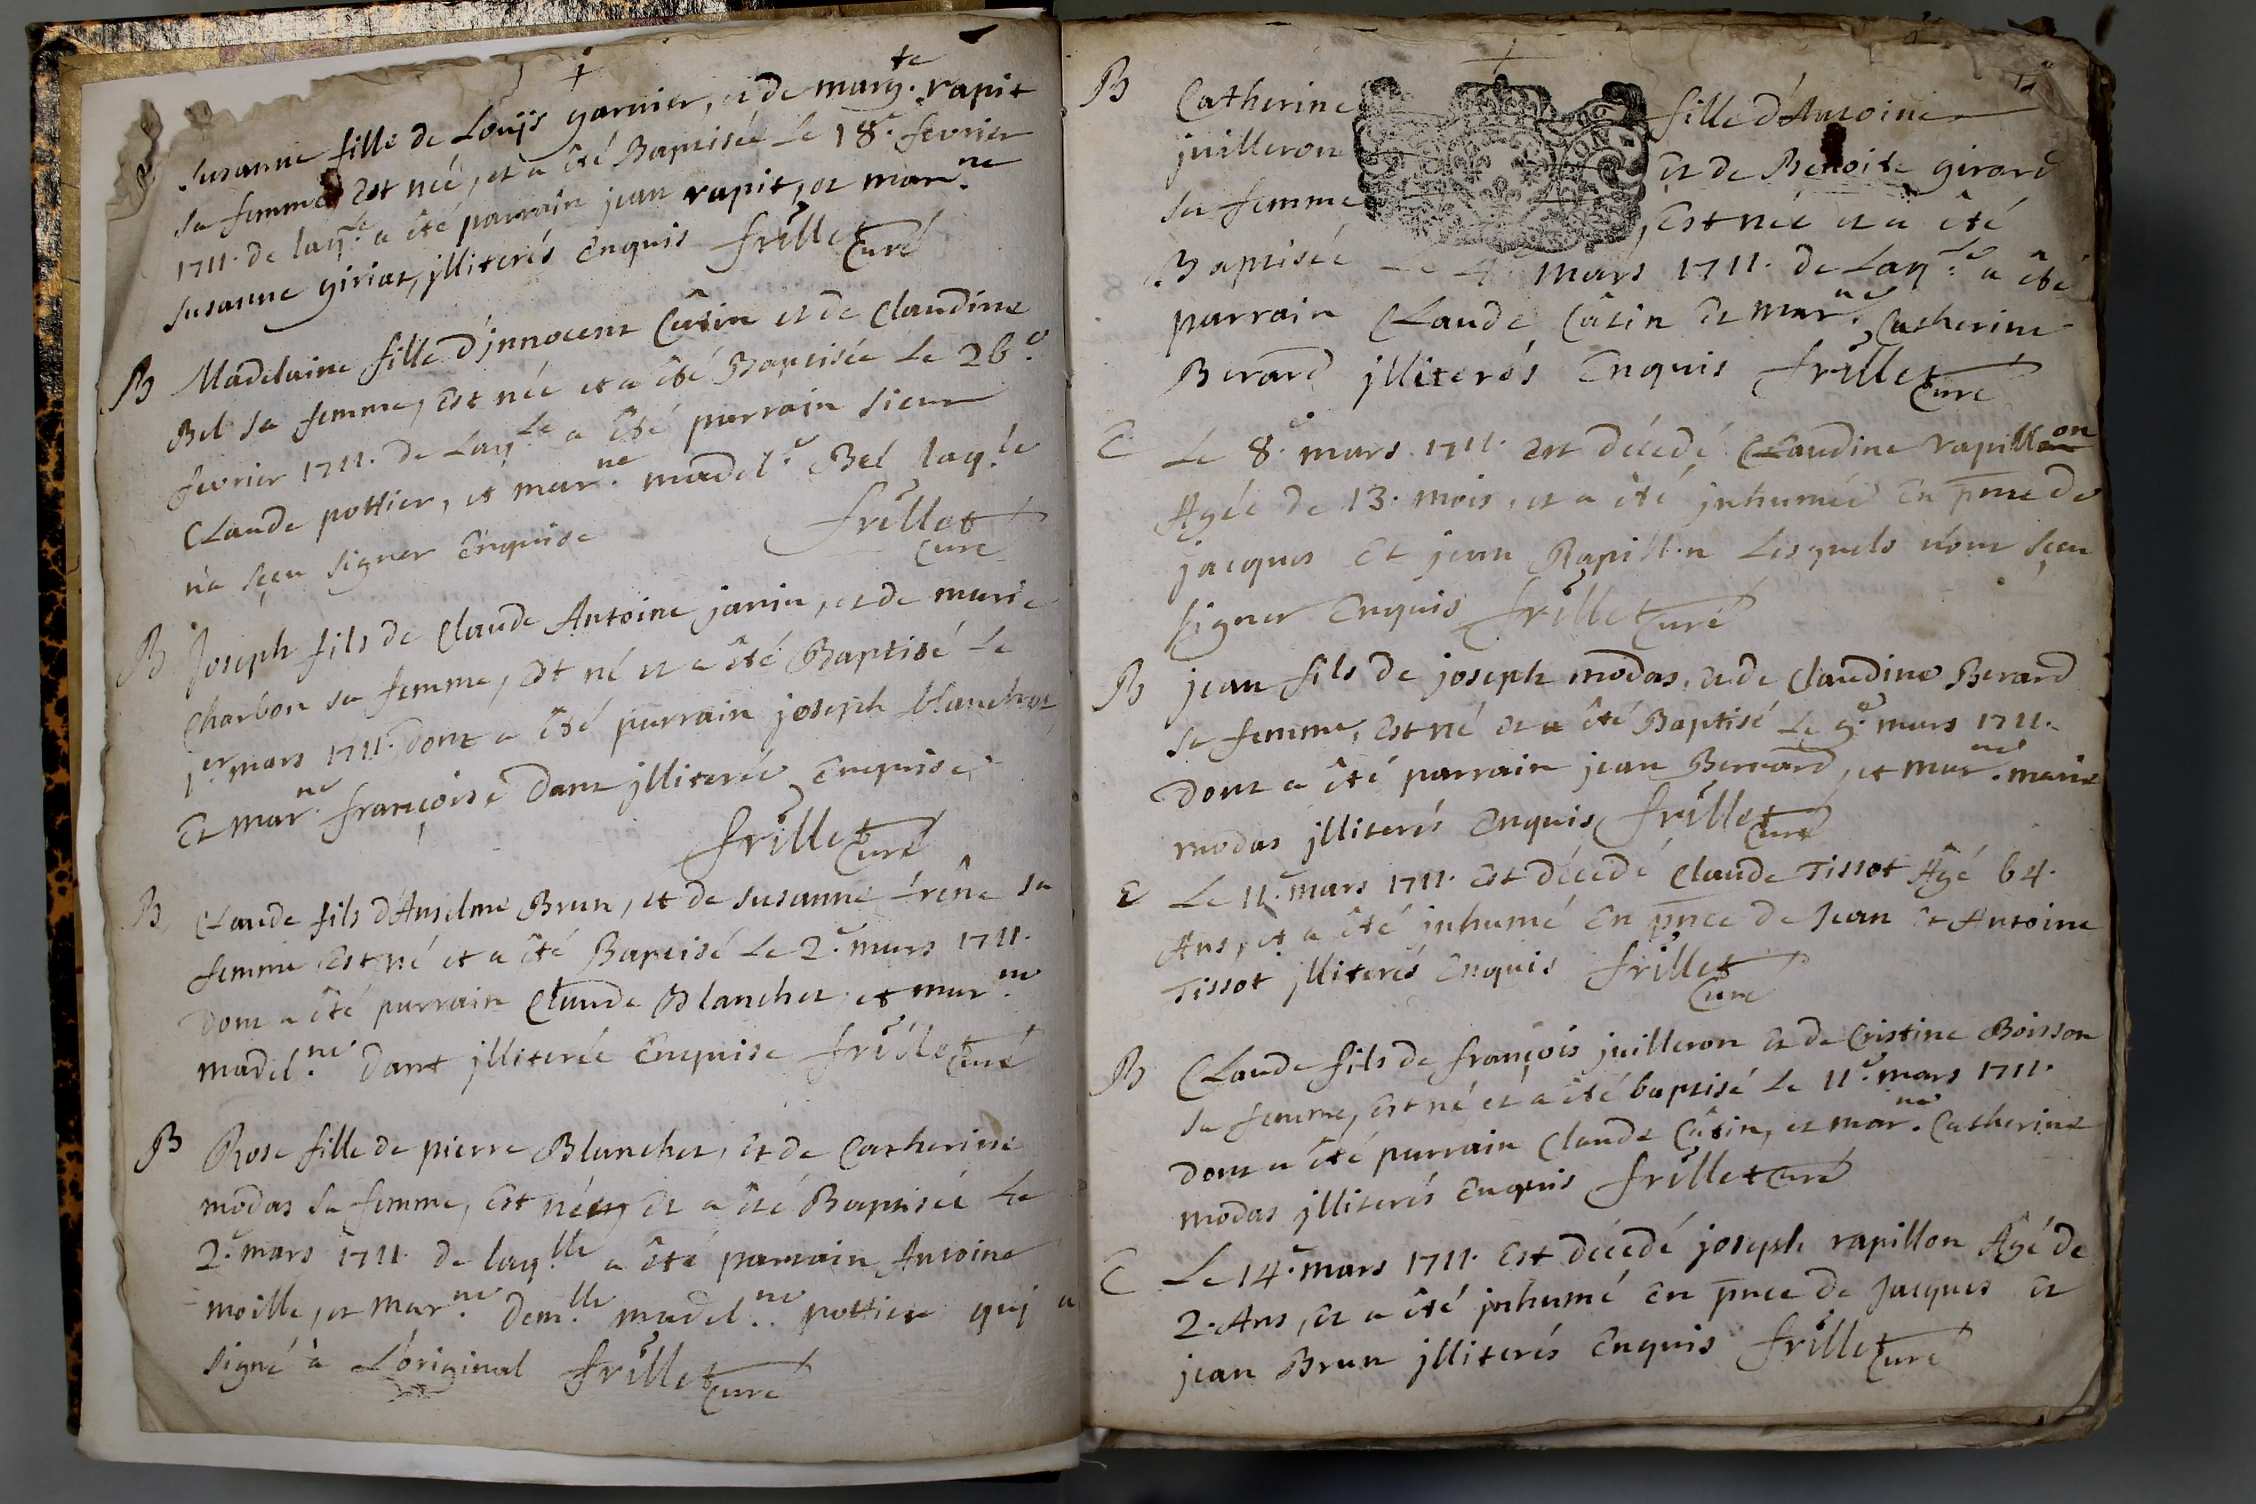 B Susanne fille de Louijs garnier, et de marg.te rapit
sa femme, Est née, et à été Baptisée Le 18.e fevrier
1711. de laq.le a été parrain jean rapit, et marr.ne
susanne giriat, jlliterés Enquis frillet Curé
B Madelaine fille d'jnnocent Cûsin et de Claudine
Bel sa femme, Est née et a êté Baptisée Le 26.e
fevrier 1711. de Laq.le a Eté parrain sieur
CLaude pottier, et mar.ne madel.e Bel laq.le
n'a sçeu signer Enquise frillet
Curé
B Joseph fils de Claude Antoine janin, et de marie
Charbon sa femme, Est né et a êté Baptisé Le
1er mars 1711. dont a êté parrain joseph blanchet,
Et mar.ne françoise dant jlliterée Enquise
frillet Curé
B CLaude fils d'Anselme Brun, et de susanne Frêne sa
femme Est né et a êté Baptisé Le 2.e mars 1711.
dont a êté parrain Claude Blanchet et mar.ne
madel.ne dant jlliterée Enquise frillet Curé
B Rose fille de pierre Blanchet, Et de Catherine
modas sa femme, Est née Et a êté Baptisée Le
2.e mars 1711. de laq.lle a êté parrain Antoine
moille, et mar.ne dem.lle madel.ne pottier quj a
signé à L'original frillet Curé
B Catherine fille d'Antoine
juilleron Et de Benoite girard
sa femme, Est née et a êté
Baptisée Le 4.e mars 1711. de Laq.le a êté
parrain CLaude Cûsin Et mar.ne Catherine
Berard jlliterés Enquis frillet Curé
E Le 8.e mars 1711. Est décedé CLaudine rapillon
Agée de 13. mois, et a êté jnhumée En pnce de
jacques Et jean Rapillon Lesquels n'ont sçeu
signer Enquis frillet Curé
B jean fils de joseph modas, et de Claudine Berard
sa femme, Est né Et a êté Baptisé Le 9.e mars 1711.
dont a êté parrain jean Berrard, et mar.ne marie
modas jlliterés Enquis frillet Curé
E Le 11.e mars 1711. Est décedé Claude Tissot Agé 64.
Ans, et a êté jnhumé En pnce de Jean Et Antoine
Tissot jlliterés Enquis frillet
Curé
B CLaude fils de françois juilleron Et de Cristine Boisson
sa femme, Est né et a êté baptisé Le 11.e mars 1711.
dont a êté parrain Claude Cûsin, et mar.ne Catherine
modas jlliterés Enquis frillet Curé
E Le 14.e mars 1711. Est décedé joseph rapillon Agé de
2. Ans, Et a êté jnhumé En pnce de Jacques Et
jean Brun jlliterés Enquis frillet Curé